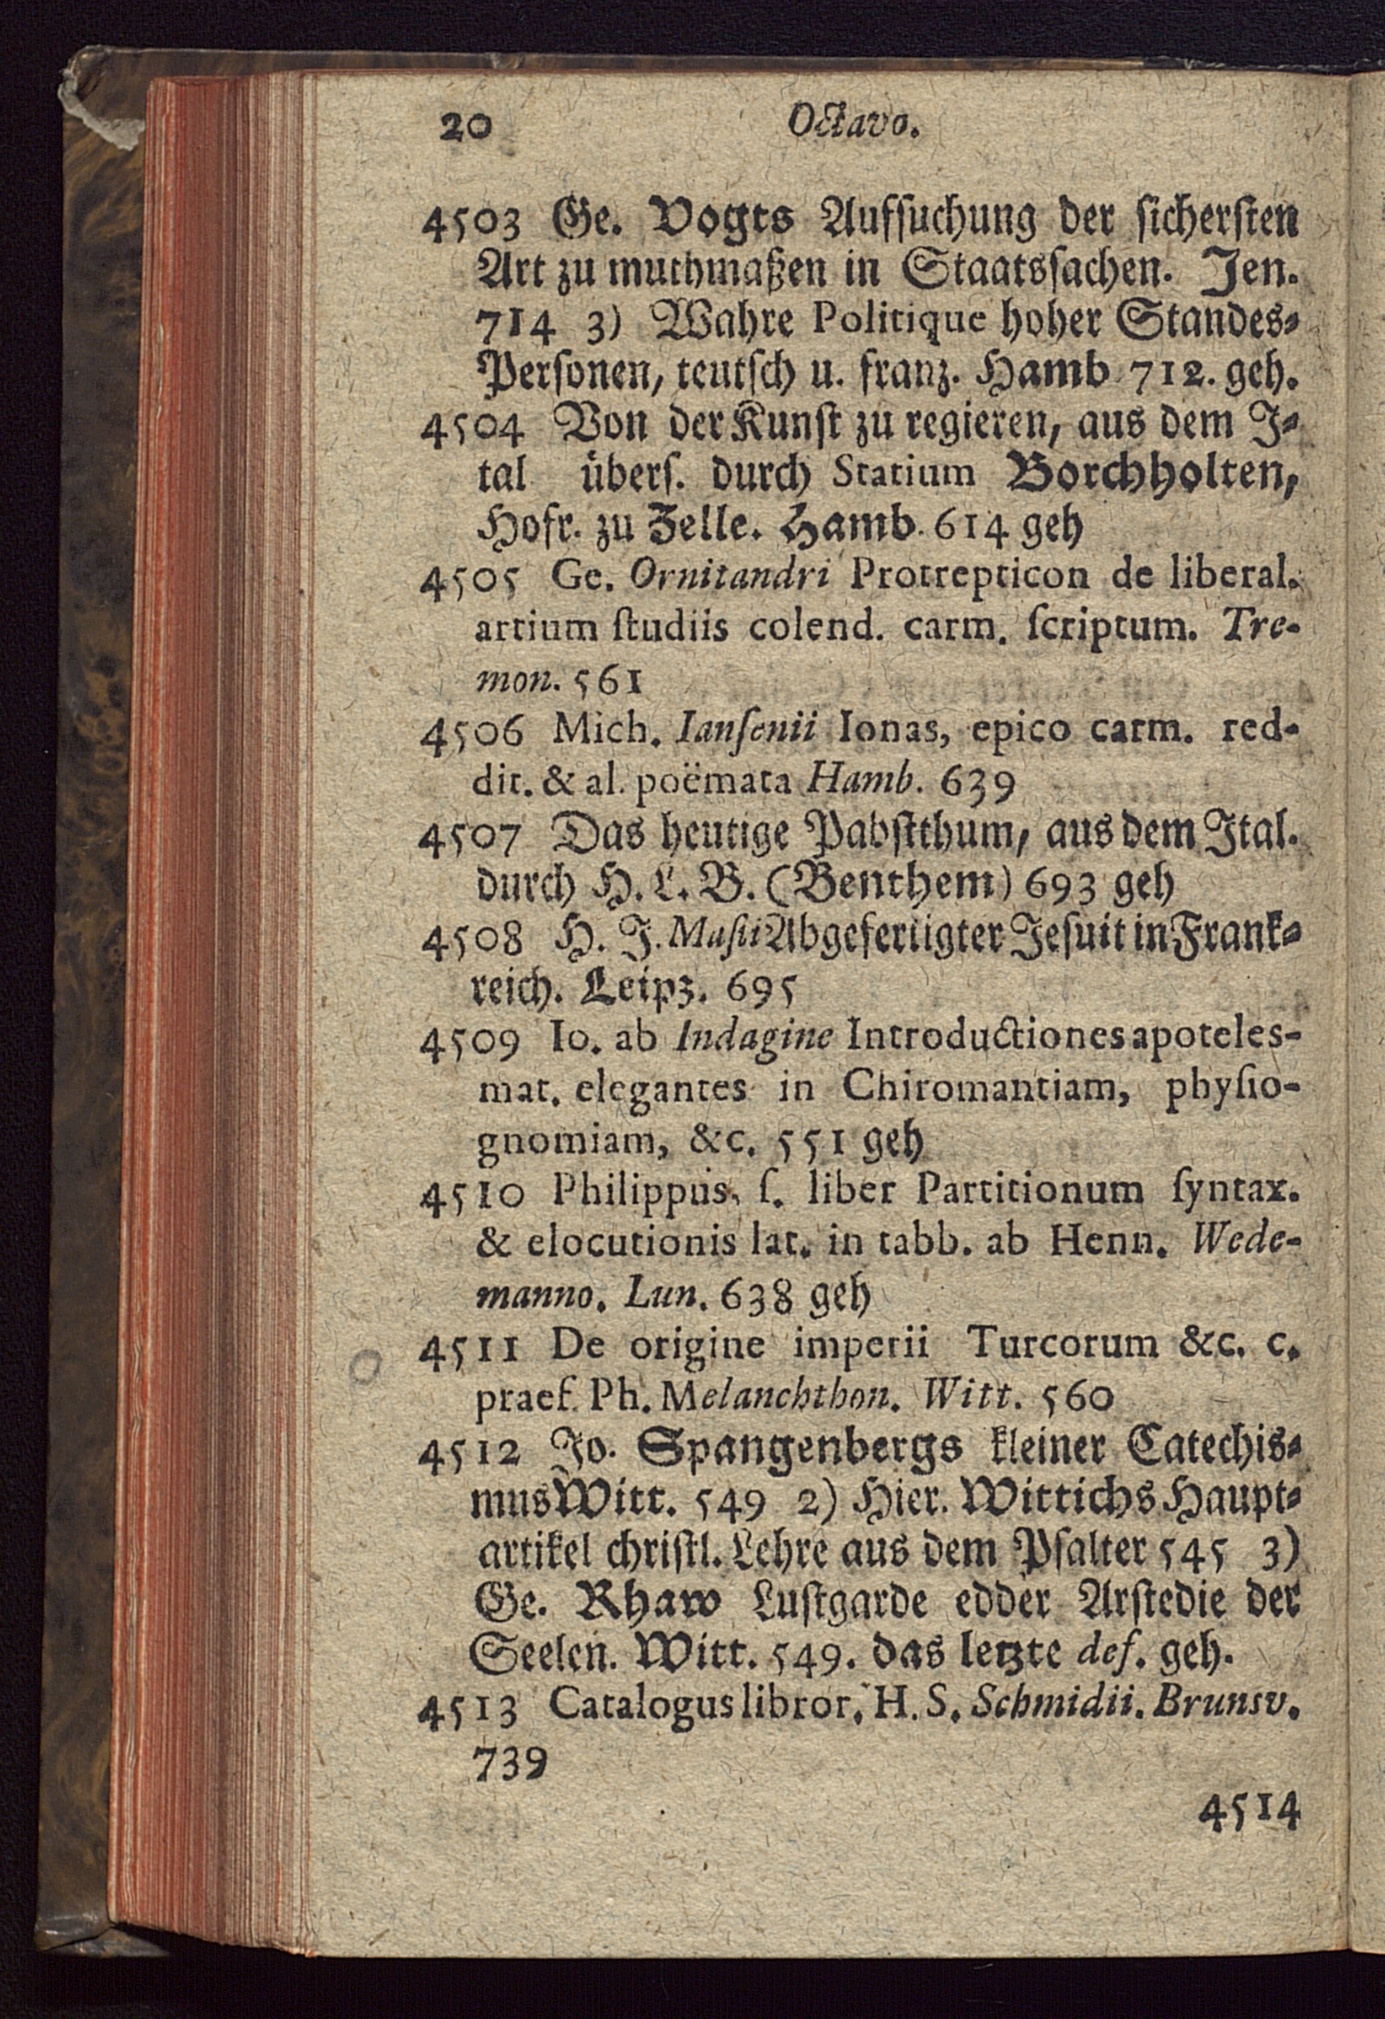 20 Octavo.
4503 Ge. Vogts Aufsuchung der sichersten
Art zu muthmaßen in Staatssachen. Jen.
714 3) Wahre Politique hoher Standes-
Personen, teutsch u. franz. Hamb 712. geh.
4504 Von der Kunst zu regieren, aus dem J-
tal übers. durch Statium Borchholten,
Hofr. zu Zelle. Hamb. 614 geh
4505 Ge. Ornitandri Protrepticon de liberal.
artium ſtudiis colend. carm. ſcriptum. Tre-
mon. 561
4506 Mich. Ianſenii Ionas, epico carm. red-
dit. & al. poëmata Hamb. 639
4507 Das heutige Pabstthum, aus dem Ital.
durch H. L. B. (Benthem) 693 geh
4508 H. J. Maſii Abgefertigter Jesuit in Frank-
reich. Leipz. 695
4509 Io. ab Indagine Introductiones apoteles-
mat. elegantes in Chiromantiam, phyſio-
gnomiam, &c. 551 geh
4510 Philippus, ſ. liber Partitionum ſyntax.
& elocutionis lat. in tabb. ab Henn. Wede-
manno. Lun. 638 geh
4511 De origine imperii Turcorum &c. c.
praef. Ph. Melanchthon. Witt. 560
4512 Jo. Spangenbergs kleiner Catechis-
mus Witt. 549 2) Hier. Wittichs Haupt-
artikel christl. Lehre aus dem Psalter 545 3)
Ge. Rhaw Lustgarde edder Arstedie der
Seelen. Witt. 549. das letzte def. geh.
4513 Catalogus libror. H. S. Schmidii. Brunsv.
739
4514